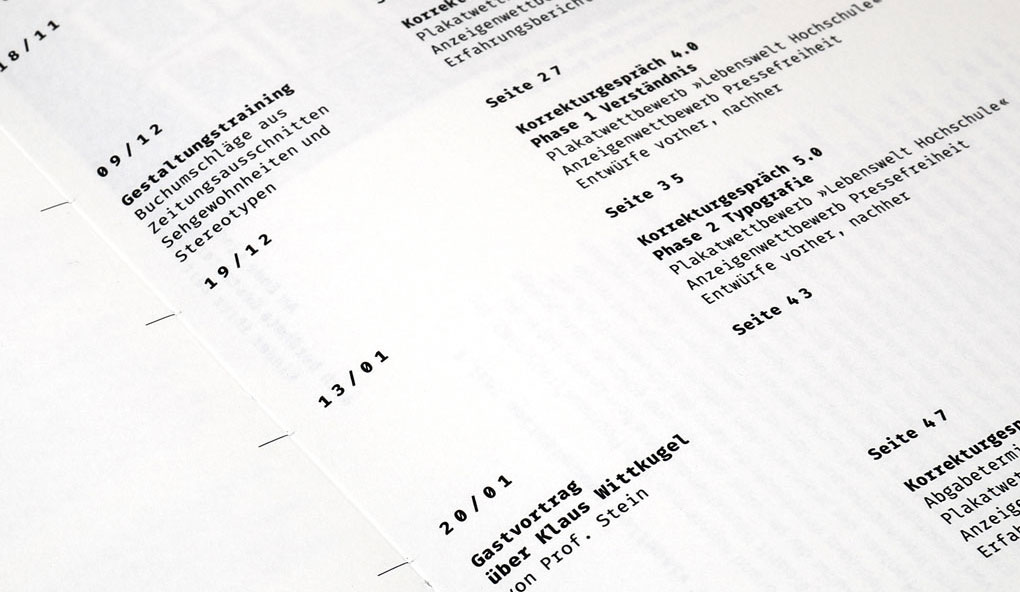 18/11
09/12
Gestaltungstraining
Buchumschläge aus
Zeitungsausschnitten
Sehgewohnheiten und
Stereotypen
19/12
13/01
20/01
Gastvortrag
über Klaus Wittkugel
von Prof. Stein
Anzeigenwettb
Erfahrungsbericht
Seite 27
Korrekturgespräch 4.0
Phase 1 Verständnis
Plakatwettbewerb »Lebenswelt Hochschule«
Anzeigenwettbewerb Pressefreiheit
Entwürfe vorher, nachher
Seite 35
Korrekturgespräch 5.0
Phase 2 Typografie
Plakatwettbewerb »Lebenswelt Hochschule«
Anzeigenwettbewerb Pressefreiheit
Entwürfe vorher, nachher
Seite 43
Seite 47
Korrekturgesp
Abgabetermi
Plakatwet
Anzeige
Erfah